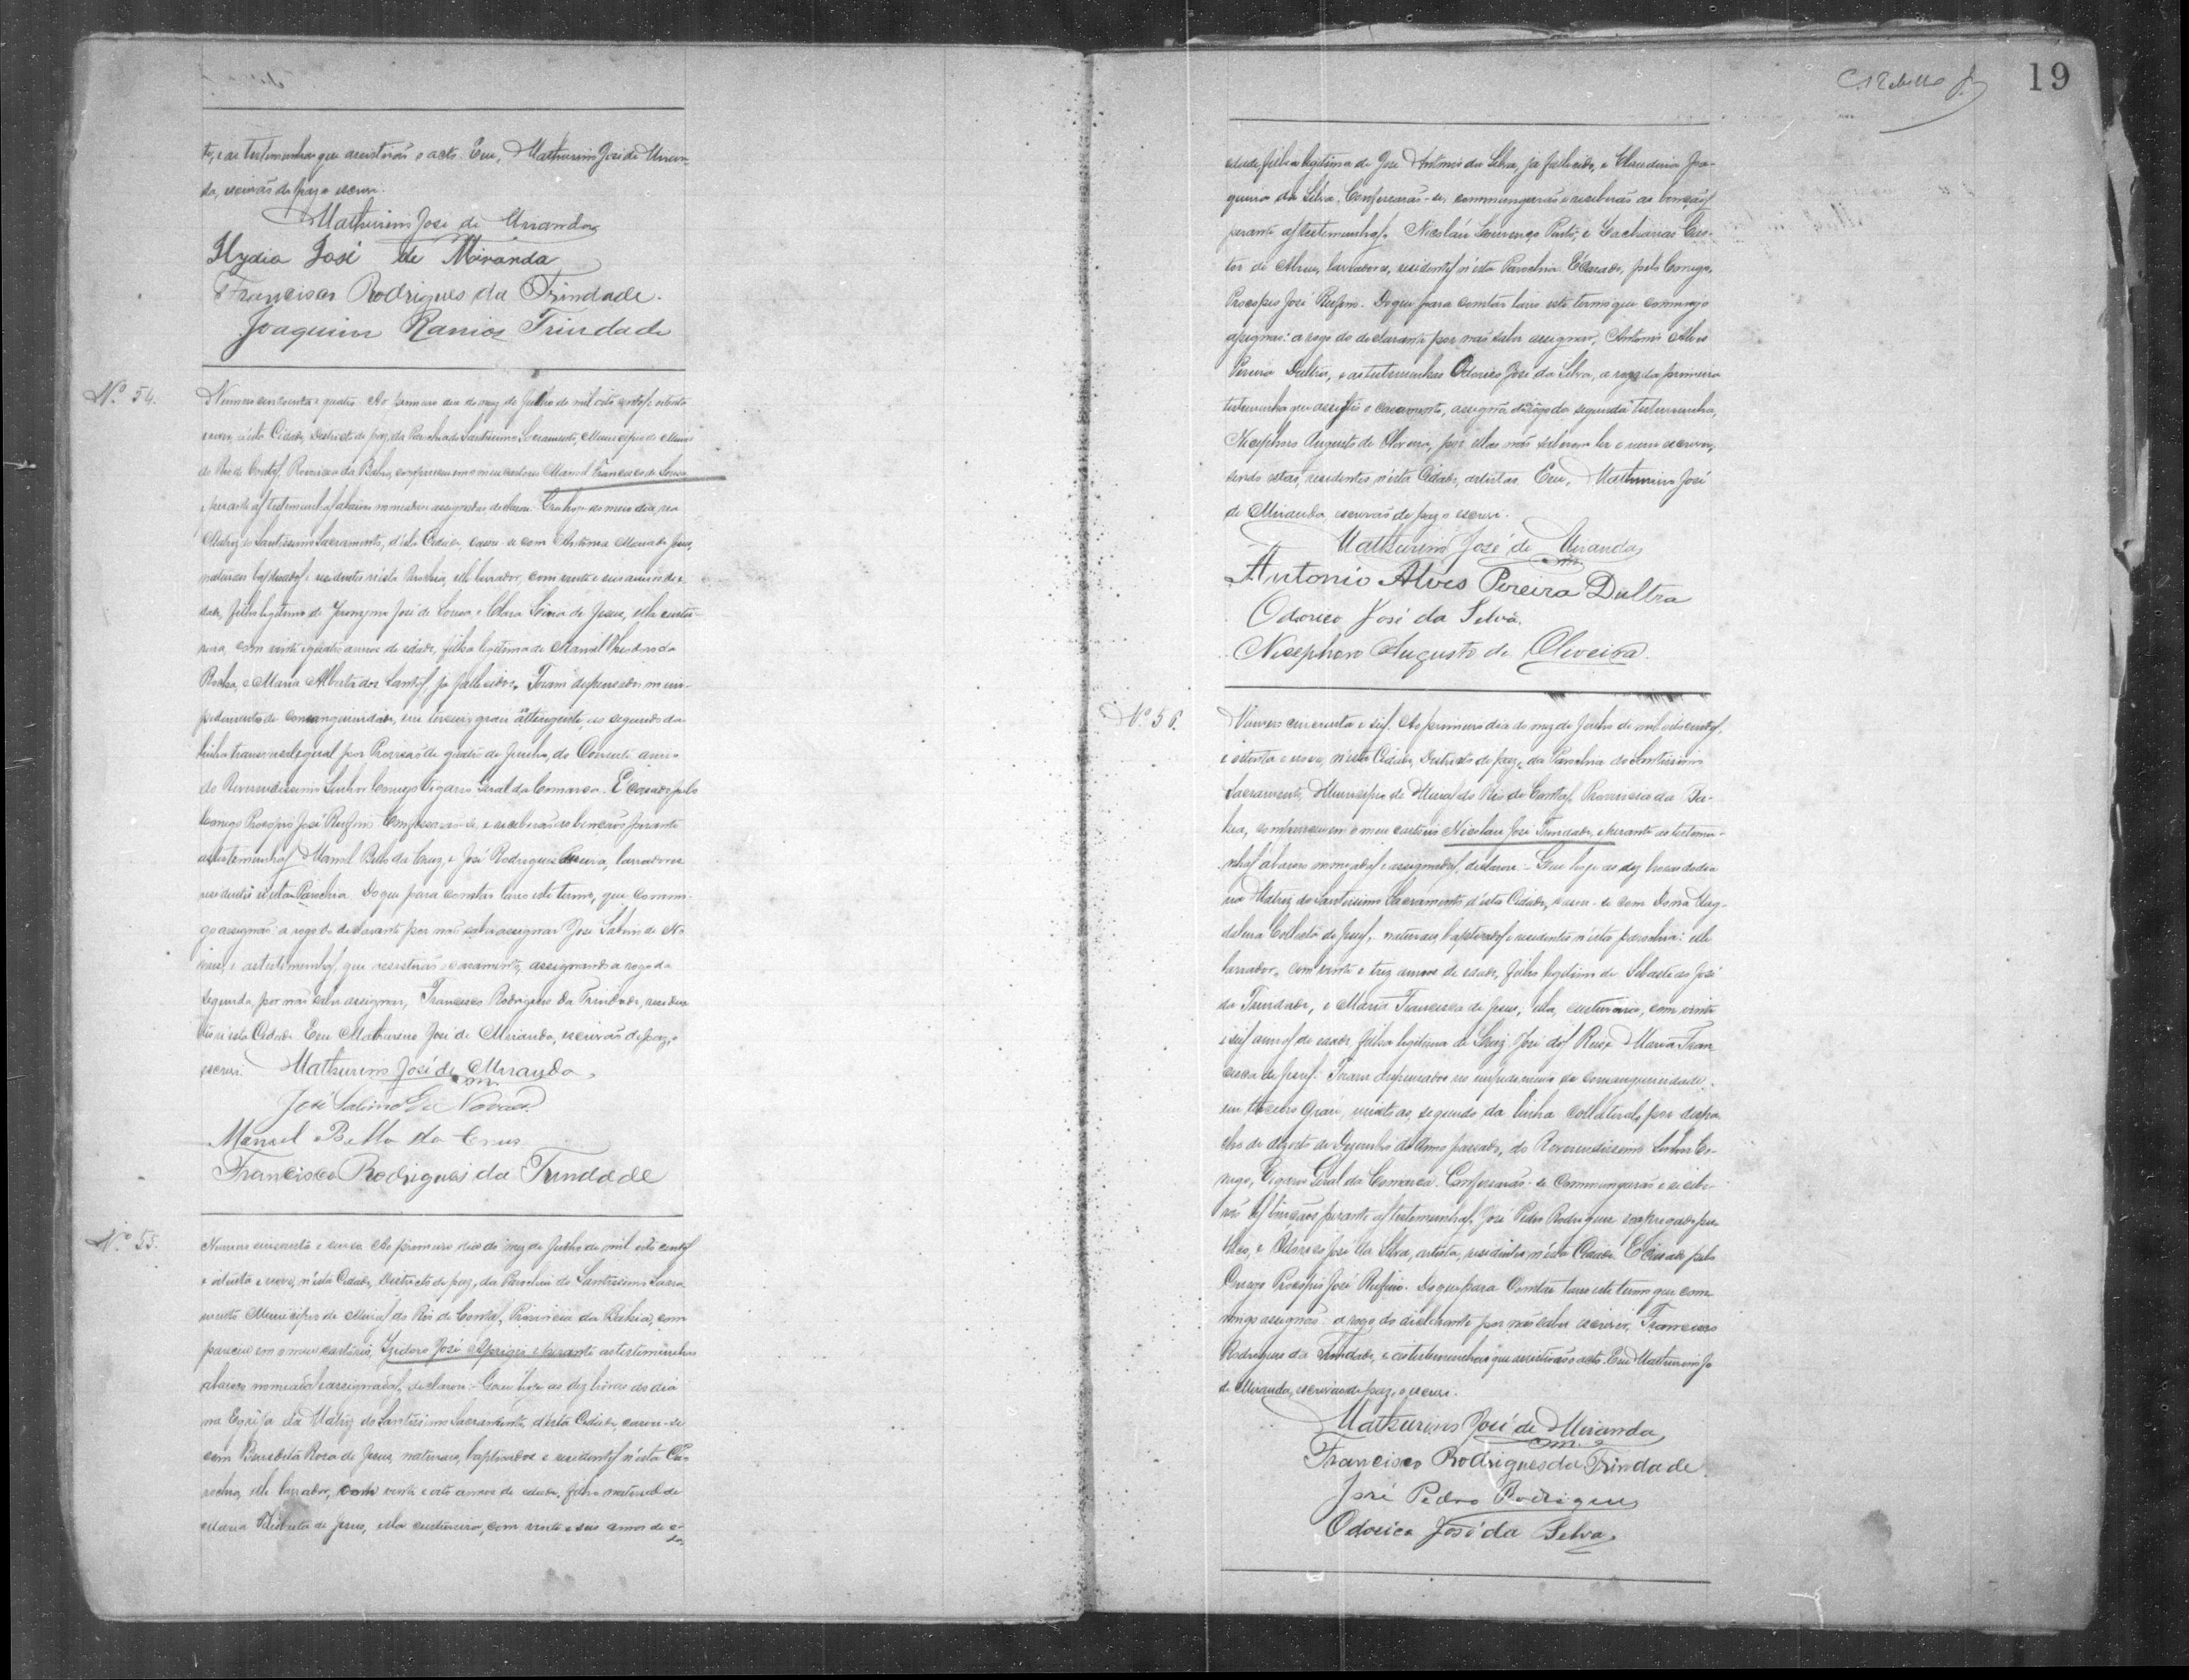 to, e as testemunhas que assistirão o acto. Eu, Mathurino José de Miran-
da, escrivão de paz o escrevi.
Mathurino José de Miranda
Ilydio José de Miranda
Francisco Rodrigues da Trindade.
Joaquim Ramos Trindade
Nº 54.
Numero cincoenta e quatro. Ao primeiro dia do mez de Julho de mil oito centos e oitenta
e nove, n'esta Cidade, Districto de paz, da Parochia do Santissimo Sacramento, Municipio de Minas
do Rio de Contas, Provincia da Bahia, compareceu em o meu cartorio Manoel Francisco de Sousa
e perante as testemunhas abaixo nomeadas e assignadas declarou: Que hoje ao meio dia, na
Matriz do Santissimo Sacramento, d'esta Cidade, casou-se com Antonia Maria de Jesus,
naturaes, baptisados e residentes n'esta Parochia, elle lavrador, com vinte e seis annos de e-
dade, filho legitimo de Jeronymo José de Sousa, e Clara Maria de Jesus, ella custu-
reira, com vinte e quatro annos de edade, filha legitima de Manoel Theodoro da
Rocha, e Maria Alberta dos Santos, já fallecidos. Foram dispensados no im-
pedimento de consanguinidade, em terceiro grau attingente, ao segundo da
linha transversal igual por Provisão de quatro de Junho, do Corrente anno
do Reverendissimo Senhor Conego Vigario Geral da Comarca. É casado pelo
Conego Procopio José Rufino. Confessarão-se, e receberão as benções perante
as testemunhas Manoel Bello da Cruz, e José Rodrigues Pereira, lavradores
residentes n'esta Parochia. Do que para constar lavro este termo, que commi-
go assignão a rogo do declarante por não saber assignar José Sabino de No-
vaes, e as testemunhas que assistirão o casamento, assignando a rogo da
segunda, por não saber assignar, Francisco Rodrigues da Trindade, residen-
te n'esta Cidade. Eu Mathurino José de Miranda, escrivão de paz, o
escrevi. Mathurino José de Miranda
José Sabino de Novaes.
Manoel Bello da Cruz
Francisco Rodrigues da Trindade
Nº 55.
Numero cincoenta e cinco. Ao primeiro dia do mez de Julho de mil oito centos
e oitenta e nove, n'esta Cidade, Districto de paz, da Parochia do Santissimo Sacra-
mento Municipio de Minas do Rio de Contas, Provincia da Bahia, com-
pareceu em o meu cartorio, Izidoro José Aprigio e perante as testemunhas
abaixo nomeadas e assignadas, declarou: Que hoje as dez horas do dia
na Egreja da Matriz do Santissimo Sacramento, d'esta Cidade, casou-se
com Benedita Rosa de Jesus, naturaes, baptisados e residentes n'esta Pa-
rochia, elle lavrador, com vinte e oito annos de edade, filho natural de
Maria de Jesus, ella custureira, com vinte e seis annos de e-
da-
19
edade filha legitima de José Antonio da Silva, já fallecido, e Claudiana Joa-
quina da Silva. Confessarão-se, commungarão e receberão as benções
perante as testemunhas, Nicolau Lourenço Porto, e Zacharias Cas-
tor de Abreu, lavradores, residentes n'esta Parochia. É casado, pelo Conego,
Procopio José Rufino. Do que para constar lavro este termo que commigo
assignão: a rogo do declarante por não saber assignar, Antonio Alves
Pereira Dultra, e as testemunhas Odorico José da Silva, a rogo da primeira
testemunha que assistio o casamento, assigna a rogo da segunda testemunha,
Nicephoro Augusto de Oliveira, por ellas não saberem ler e nem escrever,
sendo estas, residentes n'esta Cidade, artistas. Eu, Mathurino José
de Miranda, escrivão de paz o escrevi.
Mathurino José de Miranda
Antonio Alves Pereira Dultra
Odorico José da Silva.
Nicephoro Augusto de Oliveira.
Nº 56.
Numero cincoenta e seis. Ao primeiro dia do mez de Julho de mil oito centos,
e oitenta e nove, n'esta Cidade, Districto de paz, da Parochia do Santissimo
Sacramento, Municipio de Minas do Rio de Contas, Provincia da Ba-
hia, compareceu em o meu cartorio Nicolau José Trindade, e perante as testemu-
nhas abaixo nomeadas e assignadas, declarou: Que hoje as dez horas do dia
na Matriz do Santissimo Sacramento, d'esta Cidade, casou-se com Dona Mag-
dalena Collecta de Jesus, naturaes, baptisados e residentes n'esta parochia: elle
lavrador, com vinte e tres annos de edade, filho legitimo de Sebastião José
da Trindade, e Maria Francisca de Jesus; ella, custureira, com vinte
e seis annos de edade, filha legitima de Luiz José dos Reis e Maria Fran-
cisca de Jesus. Foram dispensados no impedimento de consanguinidade,
em terceiro grau, mixto ao, segundo da linha collateral, por despa-
cho de dezoito de Dezembro do anno passado, do Reverendissimo Senhor Co-
nego, Vigario Geral da Comarca. Confessarão-se, commungarão e recebe-
rão as benções perante as testemunhas, José Pedro Rodrigues empregado pu-
blico, e Odorico José da Silva, artista, residentes n'esta Cidade. É casado pelo
Conego Procopio José Rufino. Do que para Constar lavro este termo que com-
migo assignão a rogo do declarante por não saber escrever, Francisco
Rodrigues da Trindade, e as testemunhas que assistirão o acto. Eu Mathurino José
de Miranda, escrivão de paz, o escrevi.
Mathurino José de Miranda
Francisco Rodrigues da Trindade.
José Pedro Rodrigues
Odorico José da Silva.